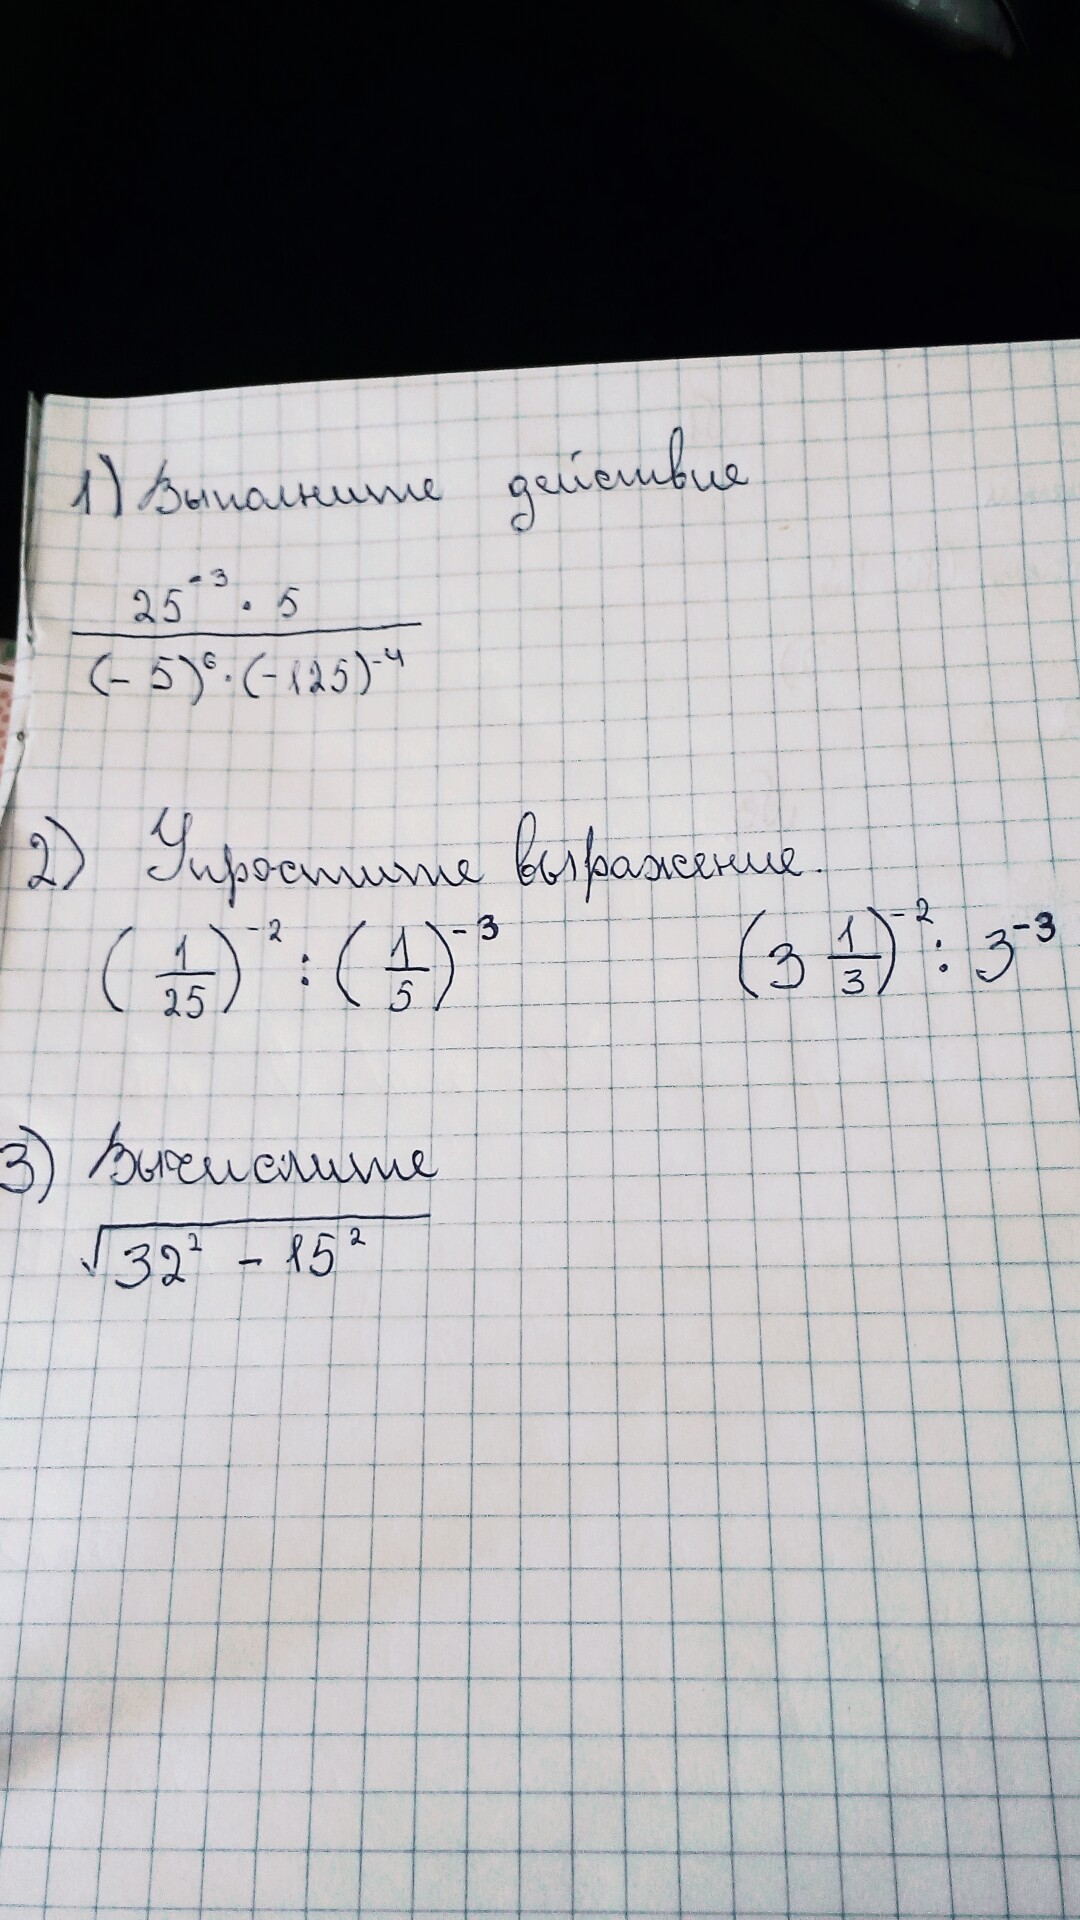 1) Выполните действие
25^-3 · 5
(-5)^6 · (-125)^-4
2) Упростите выражение.
(1/25)^-2 : (1/5)^-3 (3 1/3)^-2 : 3^-3
3) Вычислите
√32² - 15²